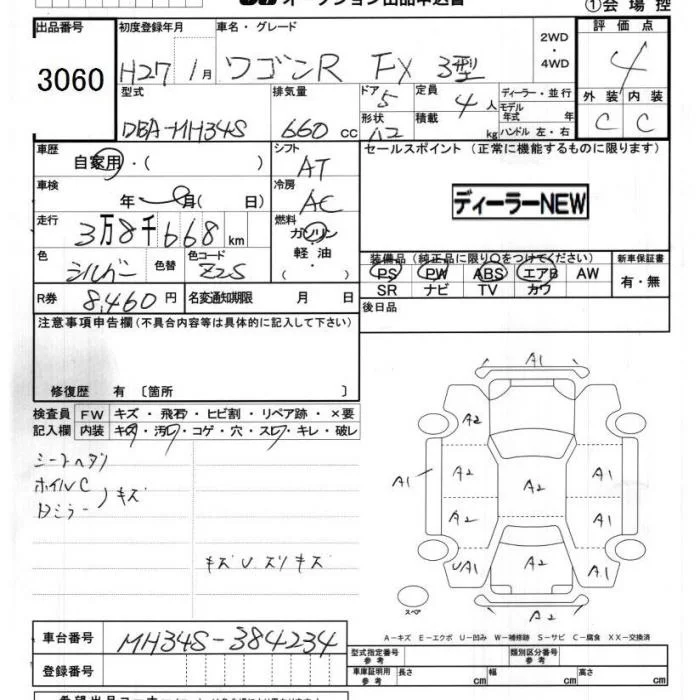 オークション出品申込書
①会場控
出品番号 初度登録年月 車名・グレード 評価点
3060 H27 1月 ワゴンR FX 3型 2WD・4WD 4
型式 排気量 ドア 5 定員 4人 ディーラー・並行 外装 内装
DBA-MH34S 660cc 形状 積載 kg モデル年式 年 ハンドル 左・右 C C
車歴 シフト セールスポイント (正常に機能するものに限ります)
自家用・( ) AT
車検 年 月( 日) 冷房 AC ディーラーNEW
走行 3万8千668km 燃料 ガソリン・軽油・( )
色 シルバー 色替 色コード Z2S
装備品 (純正品に限り○をつけてください) 新車保証書
PS PW ABS エアB AW 有・無
SR ナビ TV カワ
R券 8,460円 名変通知期限 月 日
後日品
注意事項申告欄(不具合内容等は具体的に記入して下さい)
修復歴 有 〔箇所 〕
検査員 FW キズ・飛石・ヒビ割・リペア跡・×要
記入欄 内装 キズ・汚レ・コゲ・穴・スレ・キレ・破レ
シートヘタリ
ホイルC
Dミラー
キズ
キズ U ズリキズ
A1
A2
A1 A2 A2 A1
A2 A1
UA1 A2 A1
A2
スペア
A-キズ E-エクボ U-凹み W-補修跡 S-サビ C-腐食 XX-交換済
車台番号 MH34S-384234
型式指定番号 参考 類別区分番号 参考
登録番号 車庫証明用 参考 長さ cm 幅 cm 高さ cm